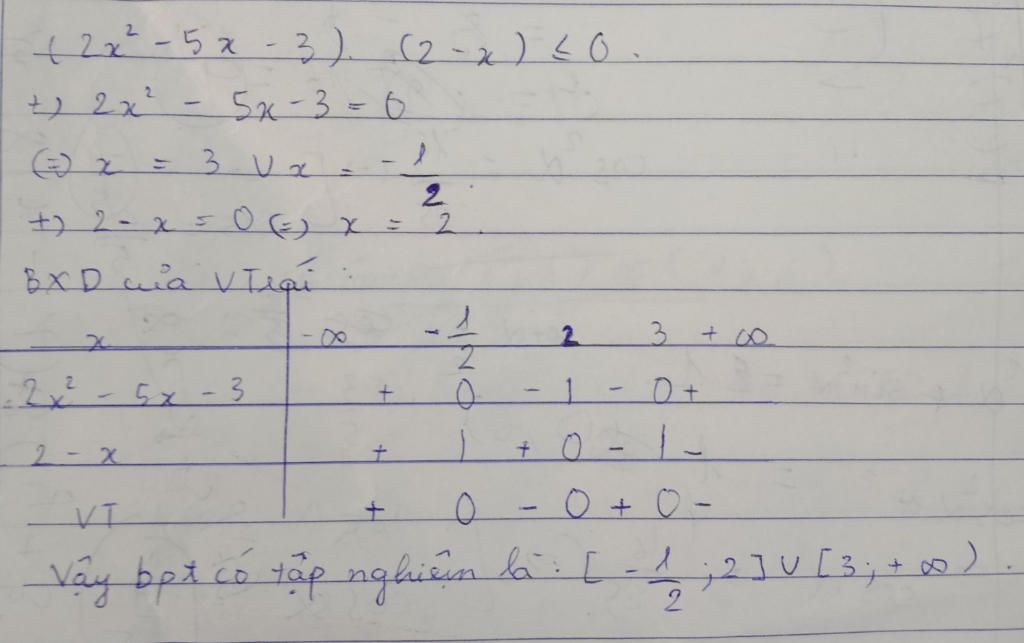 (2x² - 5x - 3). (2 - x) ≤ 0.
+) 2x² - 5x - 3 = 0
(=) x = 3 V x = -1/2.
+) 2 - x = 0 (=) x = 2.
BXD của VTrái :
x | -∞ -1/2 2 3 +∞
2x² - 5x - 3 | + 0 - | - 0 +
2 - x | + | + 0 - | -
VT | + 0 - 0 + 0 -
Vậy bpt có tập nghiệm là: [-1/2; 2] U [3; +∞).